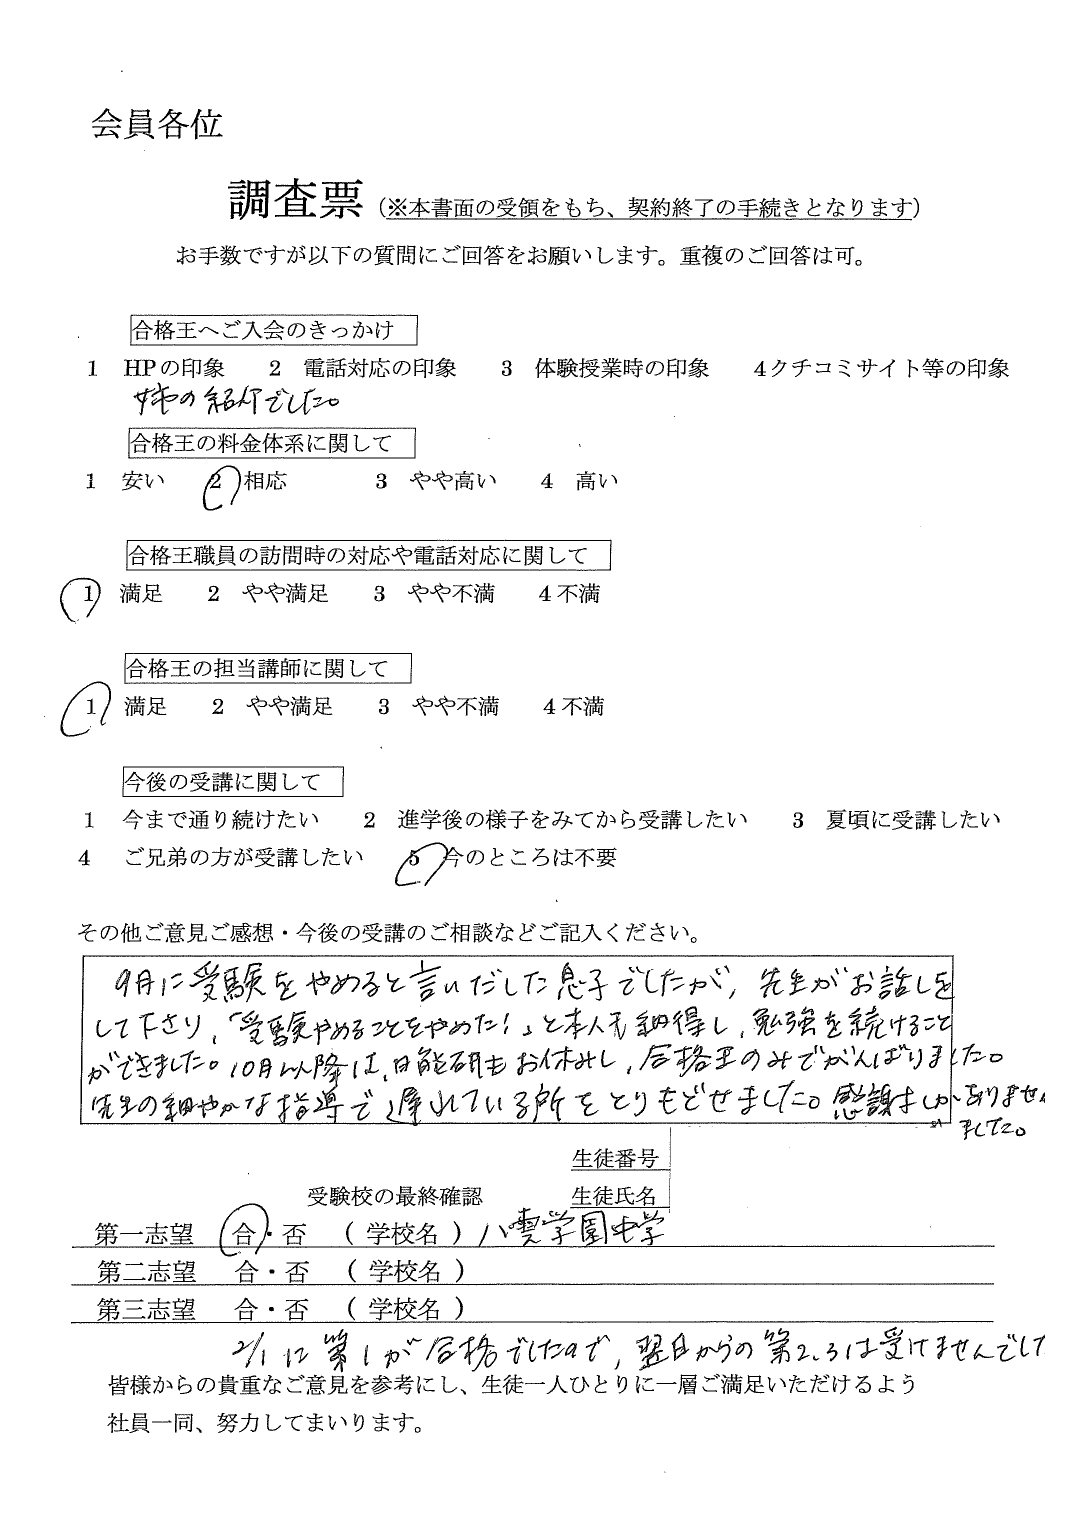 会員各位
調査票（※本書面の受領をもち、契約終了の手続きとなります）
お手数ですが以下の質問にご回答をお願いします。重複のご回答は可。
合格王へご入会のきっかけ
1 HPの印象 2 電話対応の印象 3 体験授業時の印象 4クチコミサイト等の印象
姉の紹介でした。
合格王の料金体系に関して
1 安い 2 相応 3 やや高い 4 高い
合格王職員の訪問時の対応や電話対応に関して
1 満足 2 やや満足 3 やや不満 4不満
合格王の担当講師に関して
1 満足 2 やや満足 3 やや不満 4不満
今後の受講に関して
1 今まで通り続けたい 2 進学後の様子をみてから受講したい 3 夏頃に受講したい
4 ご兄弟の方が受講したい 5 今のところは不要
その他ご意見ご感想・今後の受講のご相談などご記入ください。
9月に受験をやめると言いだした息子でしたが、先生がお話しを
して下さり、「受験やめることをやめた！」と本人も納得し、勉強を続けること
ができました。10月以降は、日能研もお休みし、合格王のみでがんばりました。
先生の細やかな指導で遅れている所をとりもどせました。感謝しかありません
ました。
生徒番号
受験校の最終確認 生徒氏名
第一志望 合・否 （学校名）八雲学園中学
第二志望 合・否 （学校名）
第三志望 合・否 （学校名）
2/1に第1が合格でしたので、翌日からの第2、3は受けませんでし
皆様からの貴重なご意見を参考にし、生徒一人ひとりに一層ご満足いただけるよう
社員一同、努力してまいります。